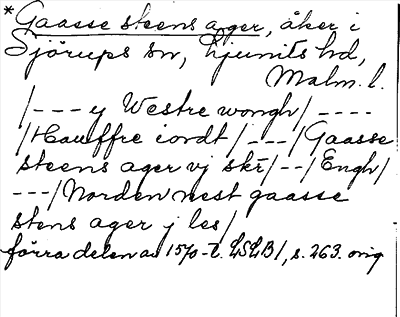 *Gaasse steens ager, åker i
Sjörups sn, Ljunits hd,
Malm. l.
/--- ej Westre wongh/----
/Hauffre iordt/---/Gaasse
steens ager vj skr̄/--/Engh/
---/Norden nest gaasse
stens ager j les/
förra delen av 1570-t. LSLB1, s. 263. orig